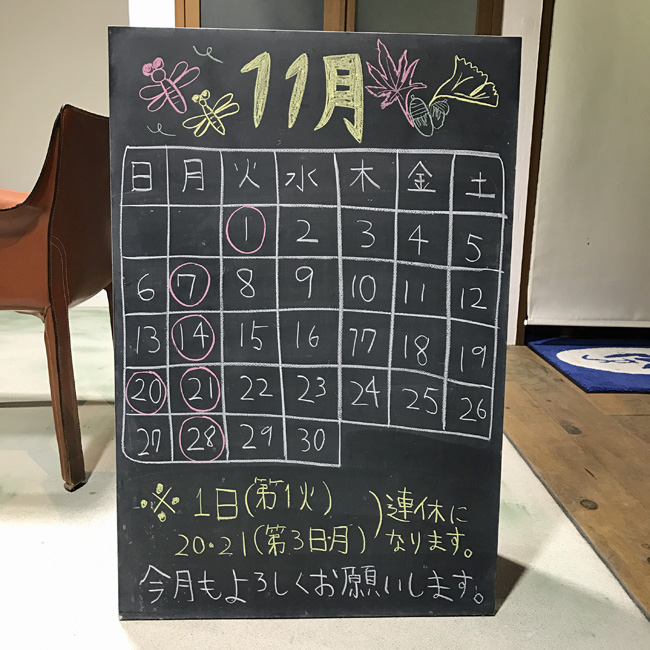 11月
日 月 火 水 木 金 土
1 2 3 4 5
6 7 8 9 10 11 12
13 14 15 16 17 18 19
20 21 22 23 24 25 26
27 28 29 30
※ 1日(第1火)
20・21(第3日・月)
)連休に
なります。
今月もよろしくお願いします。